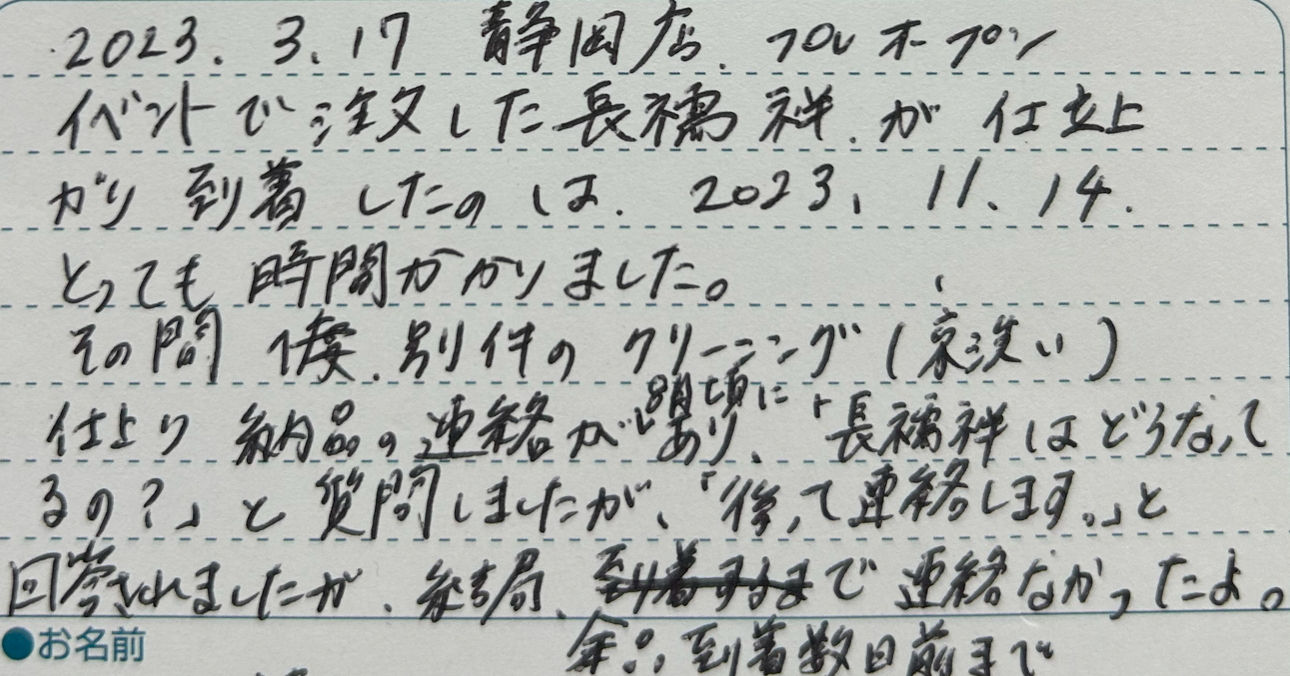 2023. 3. 17 静岡店. プレオープン
イベントで注文した長襦袢.が 仕立上
がり 到着したのは. 2023. 11. 14.
とっても 時間かかりました。
その間 1度. 別件の クリーニング(京洗い)
8月頃に
仕上り 納品の連絡があり、「長襦袢はどうなって
るの?」と 質問しましたが、「後って連絡します。」と
回答されましたが、結局、到着するまで 連絡なかったよ。
●お名前
到着数日前まで